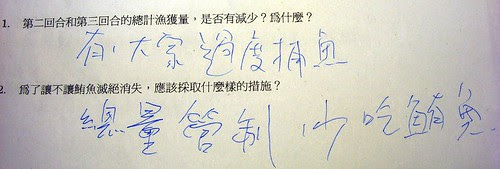 1. 第二回合和第三回合的總計漁獲量，是否有減少？爲什麼？
有，大家過度捕魚
2. 爲了讓不讓鮪魚滅絕消失，應該採取什麼樣的措施？
總量管制 少吃鮪魚